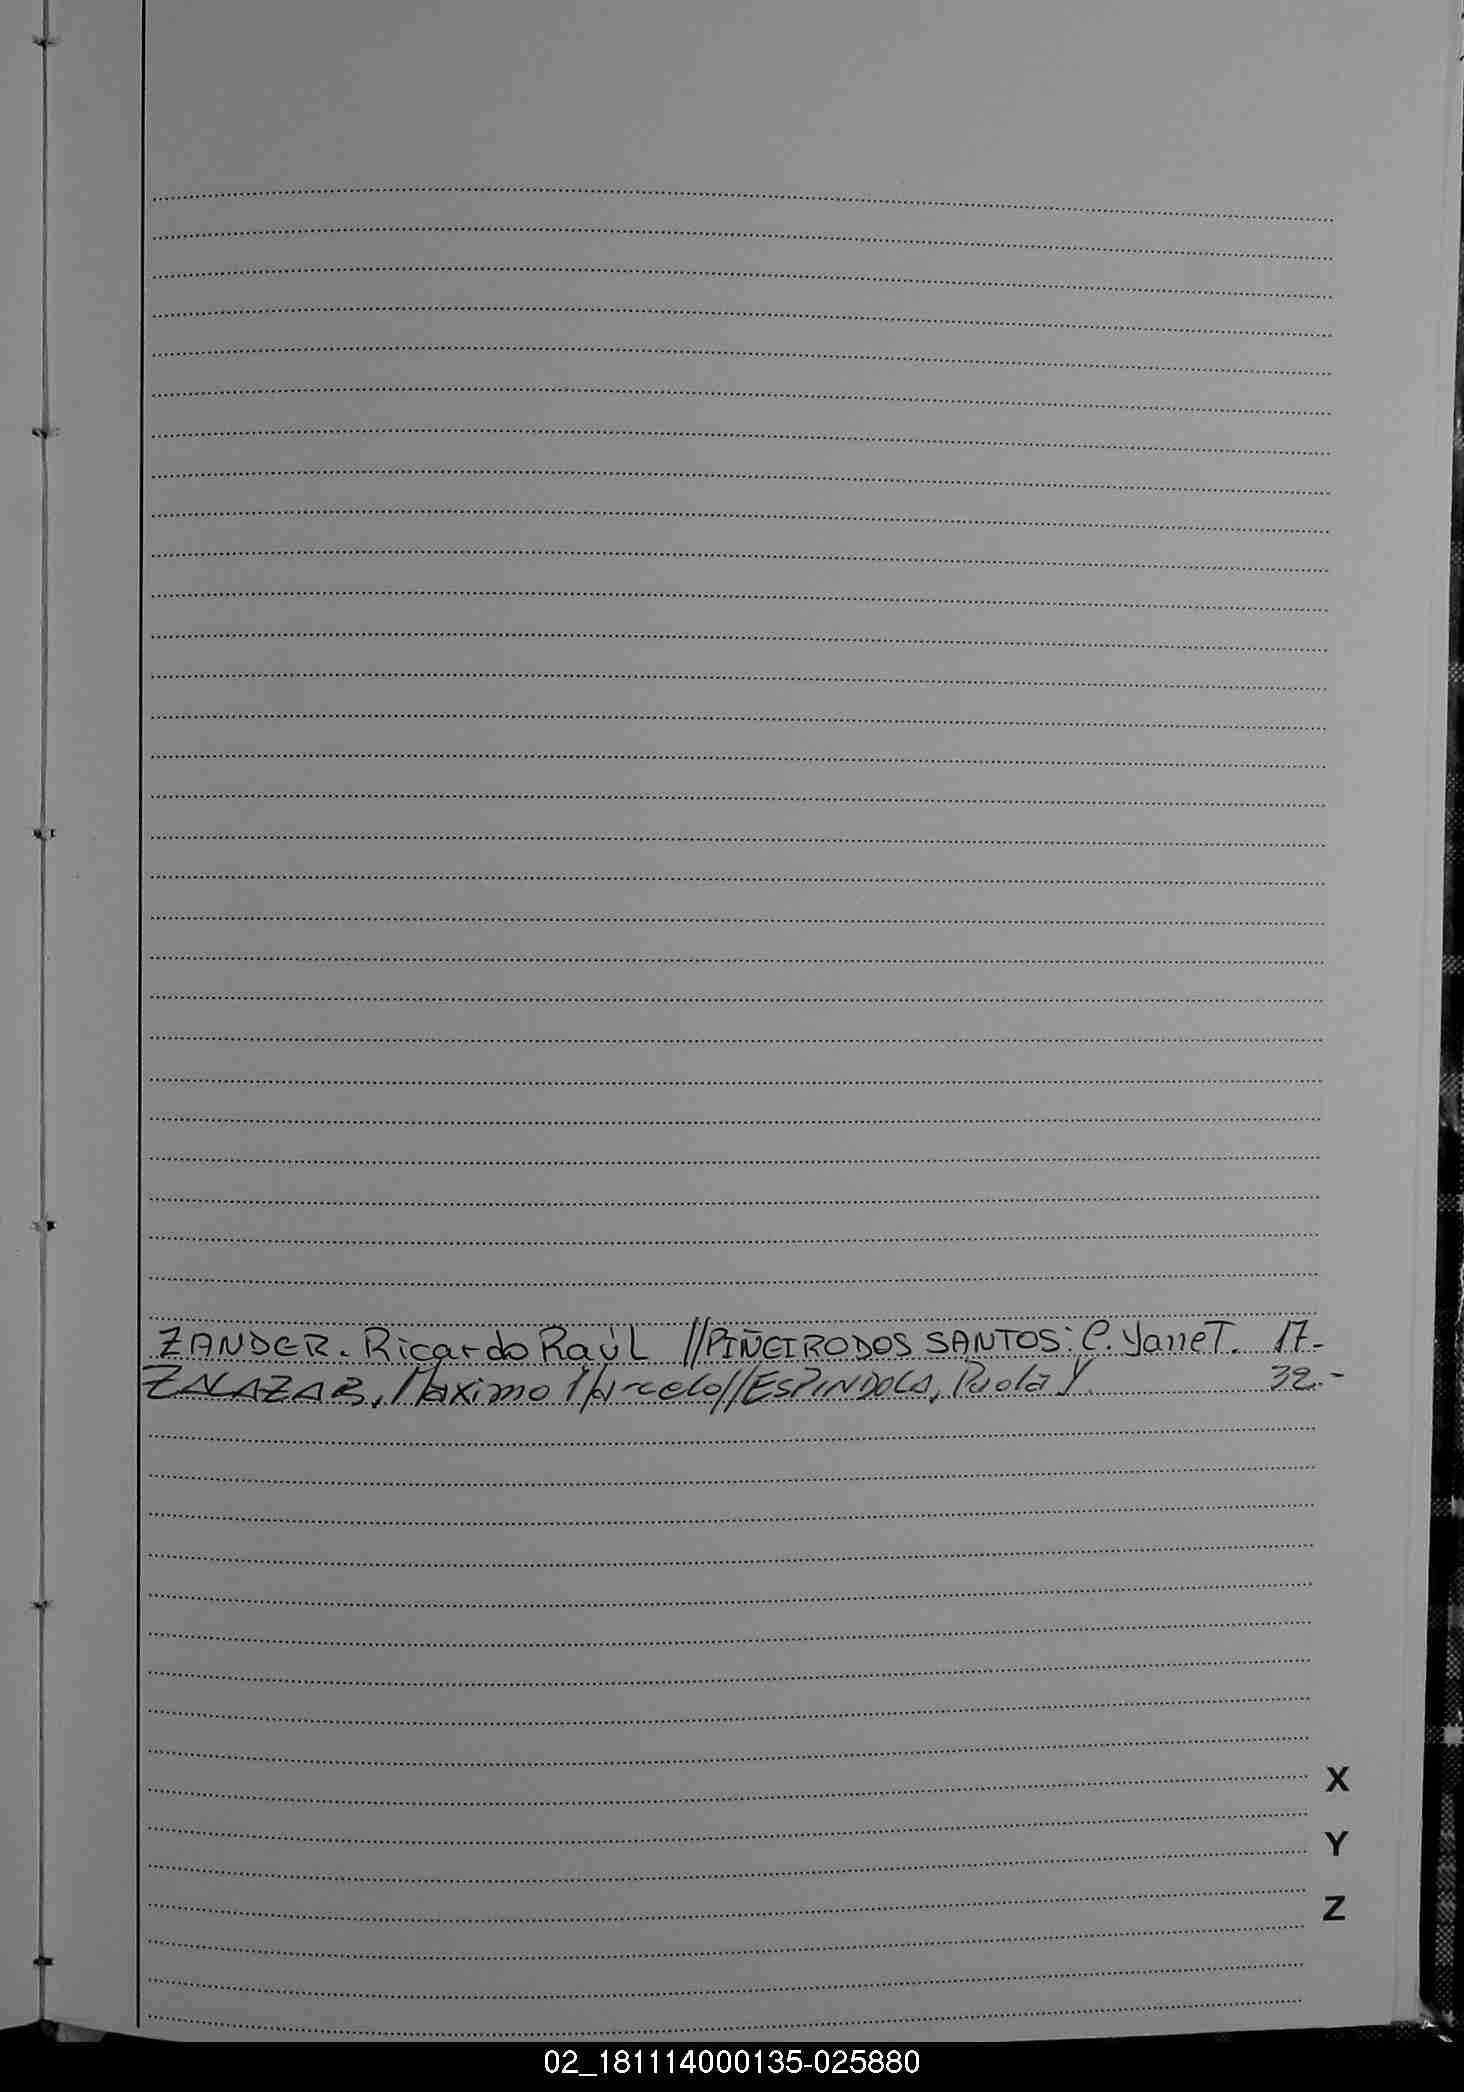 ZANDER. Ricardo Raúl //PIÑEIRO DOS SANTOS: C. Yanet. 17.-
ZALAZAR, Maximo Marcelo//ESPINDOLA, Paola Y. 32.-
X
Y
Z
02_181114000135-025880